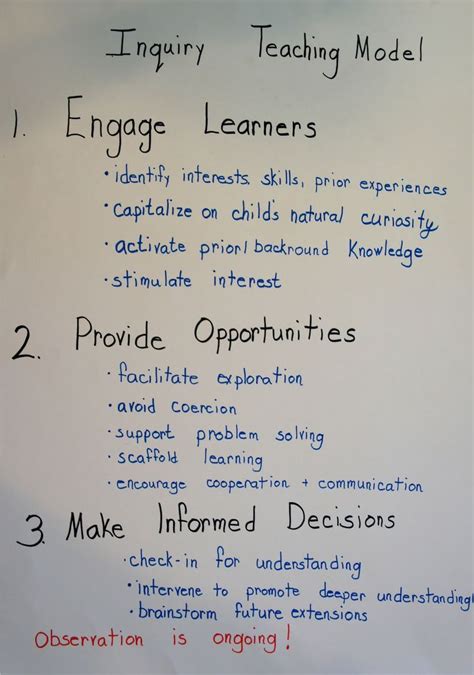 Inquiry Teaching Model
1. Engage Learners
• identify interests, skills, prior experiences
• capitalize on child's natural curiosity
• activate prior/backround Knowledge
• stimulate interest
2. Provide Opportunities
• facilitate exploration
• avoid coercion
• support problem solving
• scaffold learning
• encourage cooperation + communication
3. Make Informed Decisions
• check-in for understanding
• intervene to promote deeper understanding!
• brainstorm future extensions
Observation is ongoing!